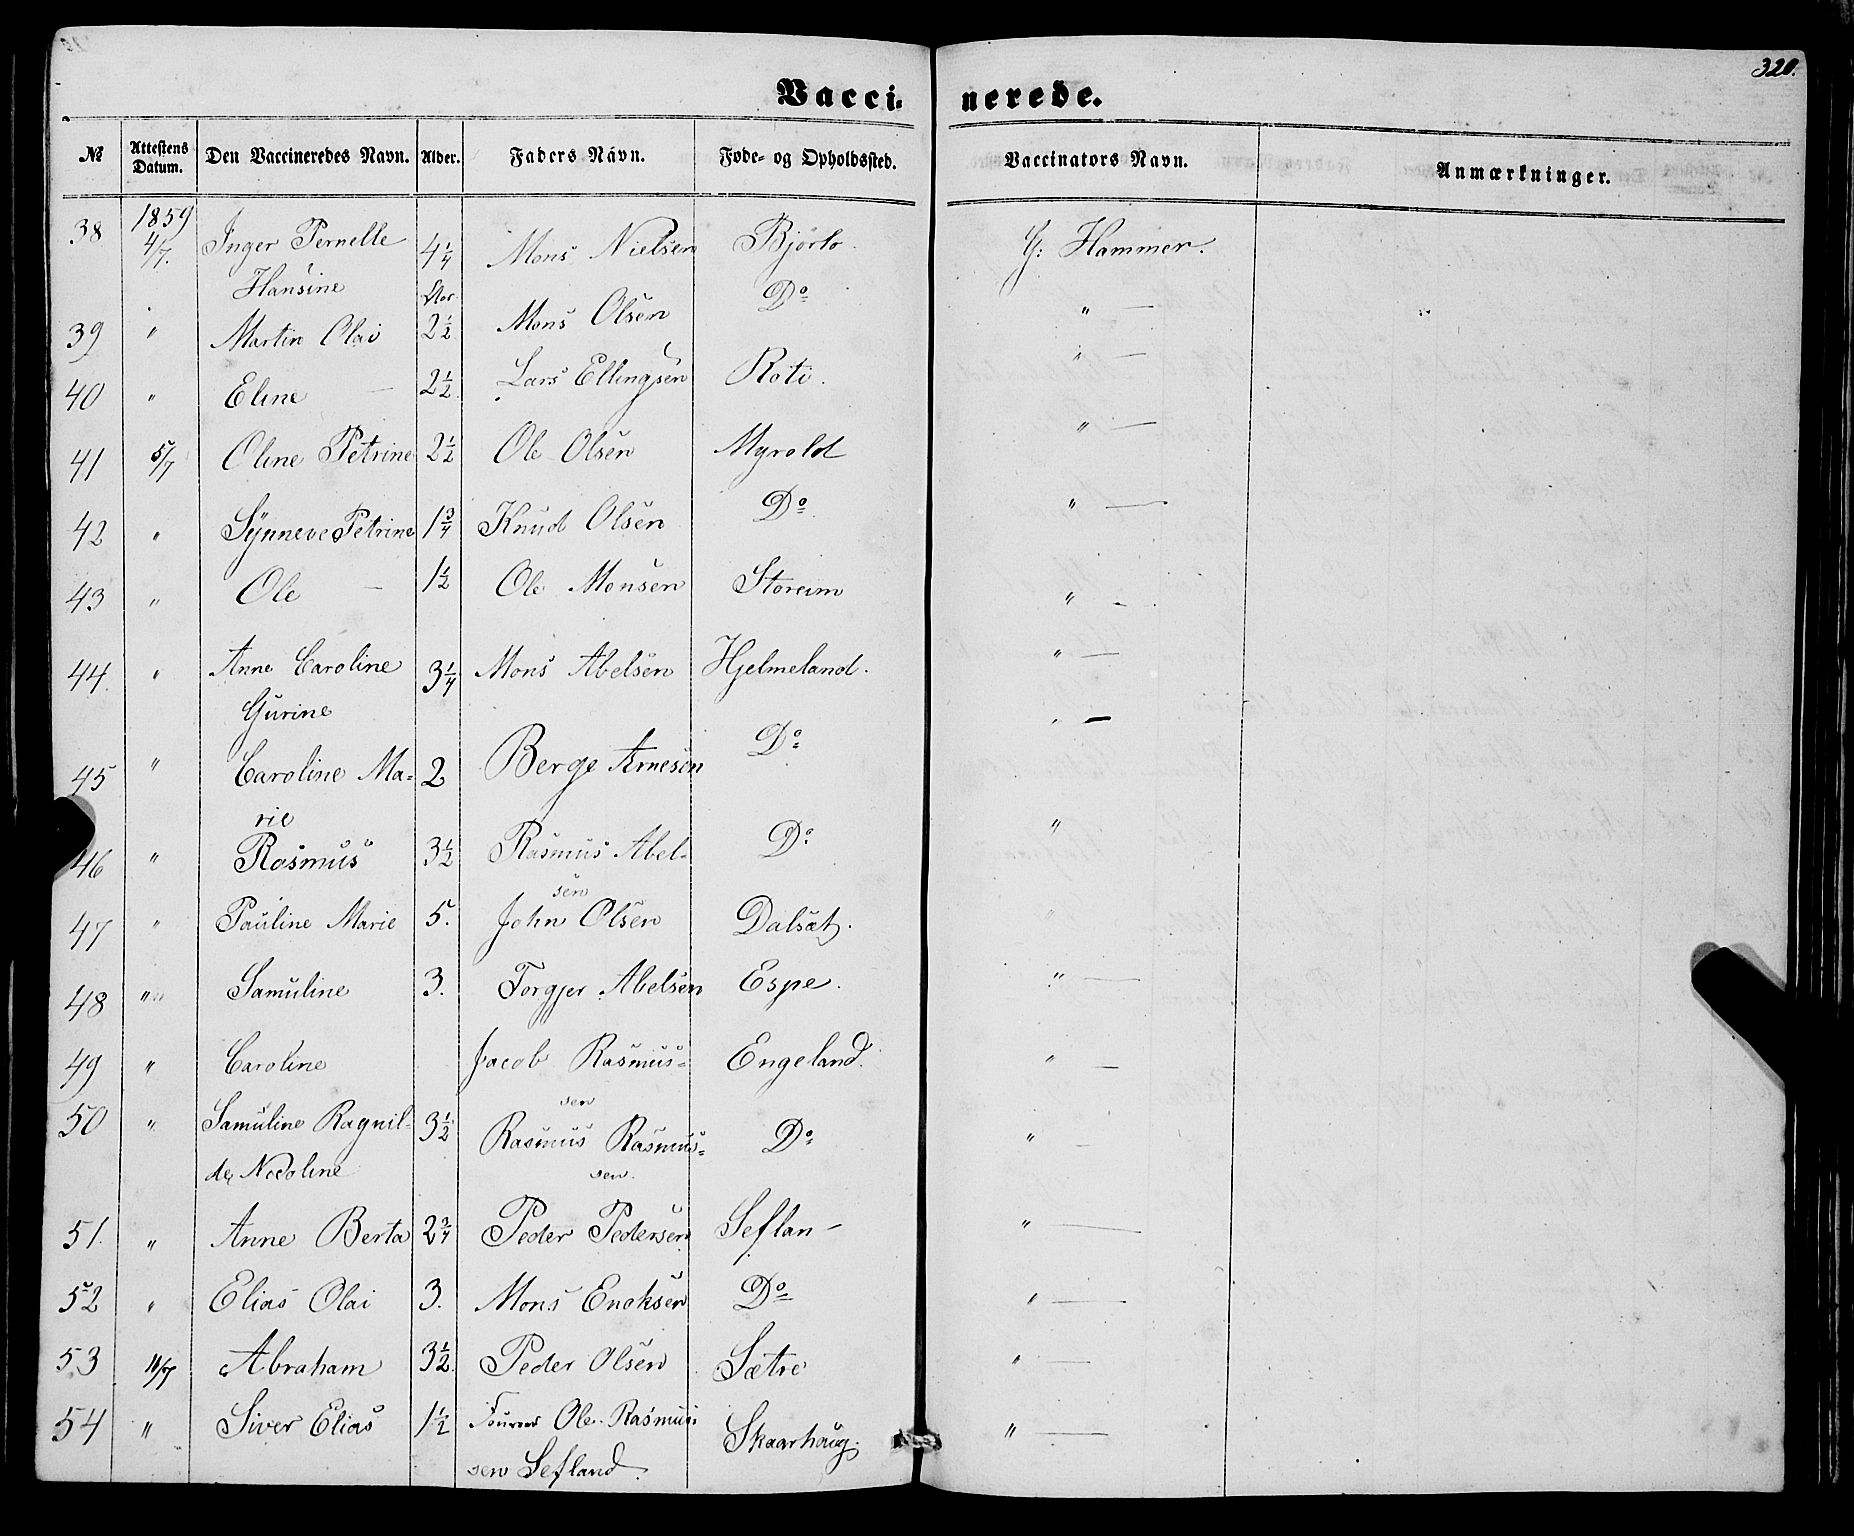 320.
Vaccinerede.
№ Attestens Datum. Den Vaccineredes Navn. Alder. Faders Navn. Føde- og Opholdssted. Vaccinators Navn. Anmærkninger.
1859
38 4/7. Inger Pernelle 4 1/4 Mons Nielsen Bjørlo. G: Hammer.
Hansine Aar
39 " Martin Olai 2 1/2 Mons Olsen Do " —
40 " Eline — 2 1/2 Lars Ellingsen Roti. " —
41 5/7 Oline Petrine 2 1/2 Ole Olsen Myrold " —
42 " Synneve Petrine 1 3/4 Knud Olsen Do " —
43 " Ole — 1 1/2 Ole Monsen Storeim " -
44. " Anne Caroline 3 1/4 Mons Abelsen Hjelmeland. " —
Gurine
45 " Caroline Ma= 2 Berge Arnesen Do " —
rie
46 " Rasmus 3 1/2 Rasmus Abel- Do "
sen
47 " Pauline Marie 5. John Olsen Dalsæt. "
48 " Samuline 3. Torgjer Abelsen Espe. " —
49 " Caroline Jacob Rasmus= Engeland. " —
sen
50 " Samuline Ragnil- 3 1/2 Rasmus Rasmus= Do " -
de Nicoline sen.
51. " Anne Berta 2 3/4 Peder Pedersen Seflan- " —
52 " Elias Olai 3. Mons Enoksen Do " —
53 11/7 Abraham 3 1/2 Peder Olsen Sætre " —
54 " Siver Elias 1 1/2 Ole Rasmus Skaarhaug. " —
sen Sefland.